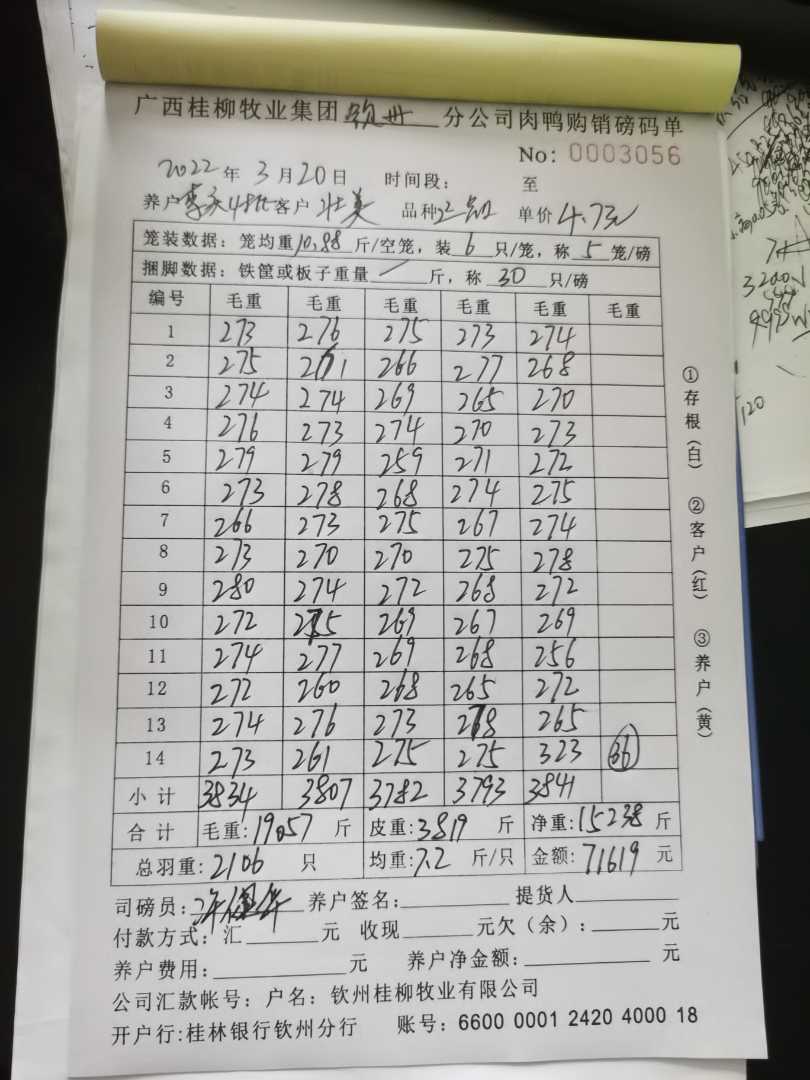 广西桂柳牧业集团钦州分公司肉鸭购销磅码单
No: 0003056
2022年3月20日 时间段: 至
养户李 客户壮美 品种 单价4.7元
笼装数据: 笼均重10.88斤/空笼, 装6只/笼, 称5笼/磅
捆脚数据: 铁筐或板子重量/斤, 称30只/磅
编号 毛重 毛重 毛重 毛重 毛重 毛重
1 273 276 275 273 274
2 275 271 266 277 268
3 274 274 269 265 270
4 276 273 274 270 273
5 279 279 259 271 272
6 273 278 268 274 275
7 266 273 275 267 274
8 273 270 270 275 278
9 280 274 272 268 272
10 272 275 269 267 269
11 274 277 269 268 256
12 272 260 268 265 272
13 274 276 273 278 265
14 273 261 275 275 323 36
小计 3834 3807 3782 3793 3841
合计 毛重:19057斤 皮重:3819斤 净重:15238斤
总羽重:2106只 均重:7.2斤/只 金额:71619元
司磅员: 养户签名: 提货人
付款方式: 汇 元 收现 元欠(余): 元
养户费用: 元 养户净金额: 元
公司汇款帐号: 户名: 钦州桂柳牧业有限公司
开户行:桂林银行钦州分行 账号: 6600 0001 2420 4000 18
①存根(白) ②客户(红) ③养户(黄)
120